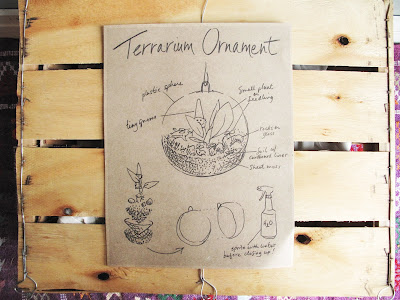 Terrarium Ornament
plastic sphere
Small plant
or
seedling
tiny gnome
rocks or
glass
Soil w/
Sheet moss
spritz with water
before closing up!